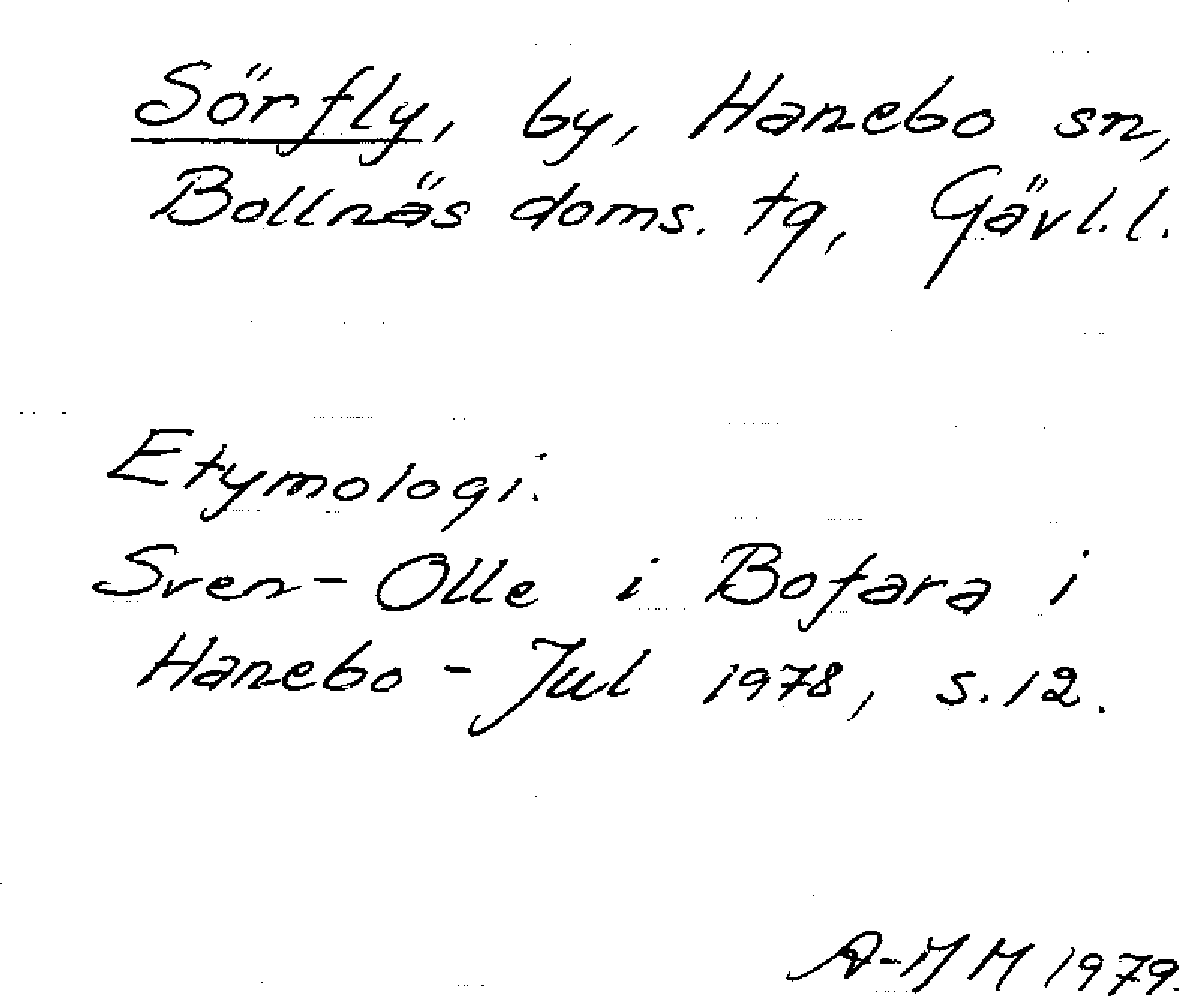 Sörfly, by, Hanebo sn,
Bollnäs doms. tg, Gävl.l.
Etymologi.
Sven-Olle i Bofara i
Hanebo - Jul 1978, s.12.
A-M M 1979.